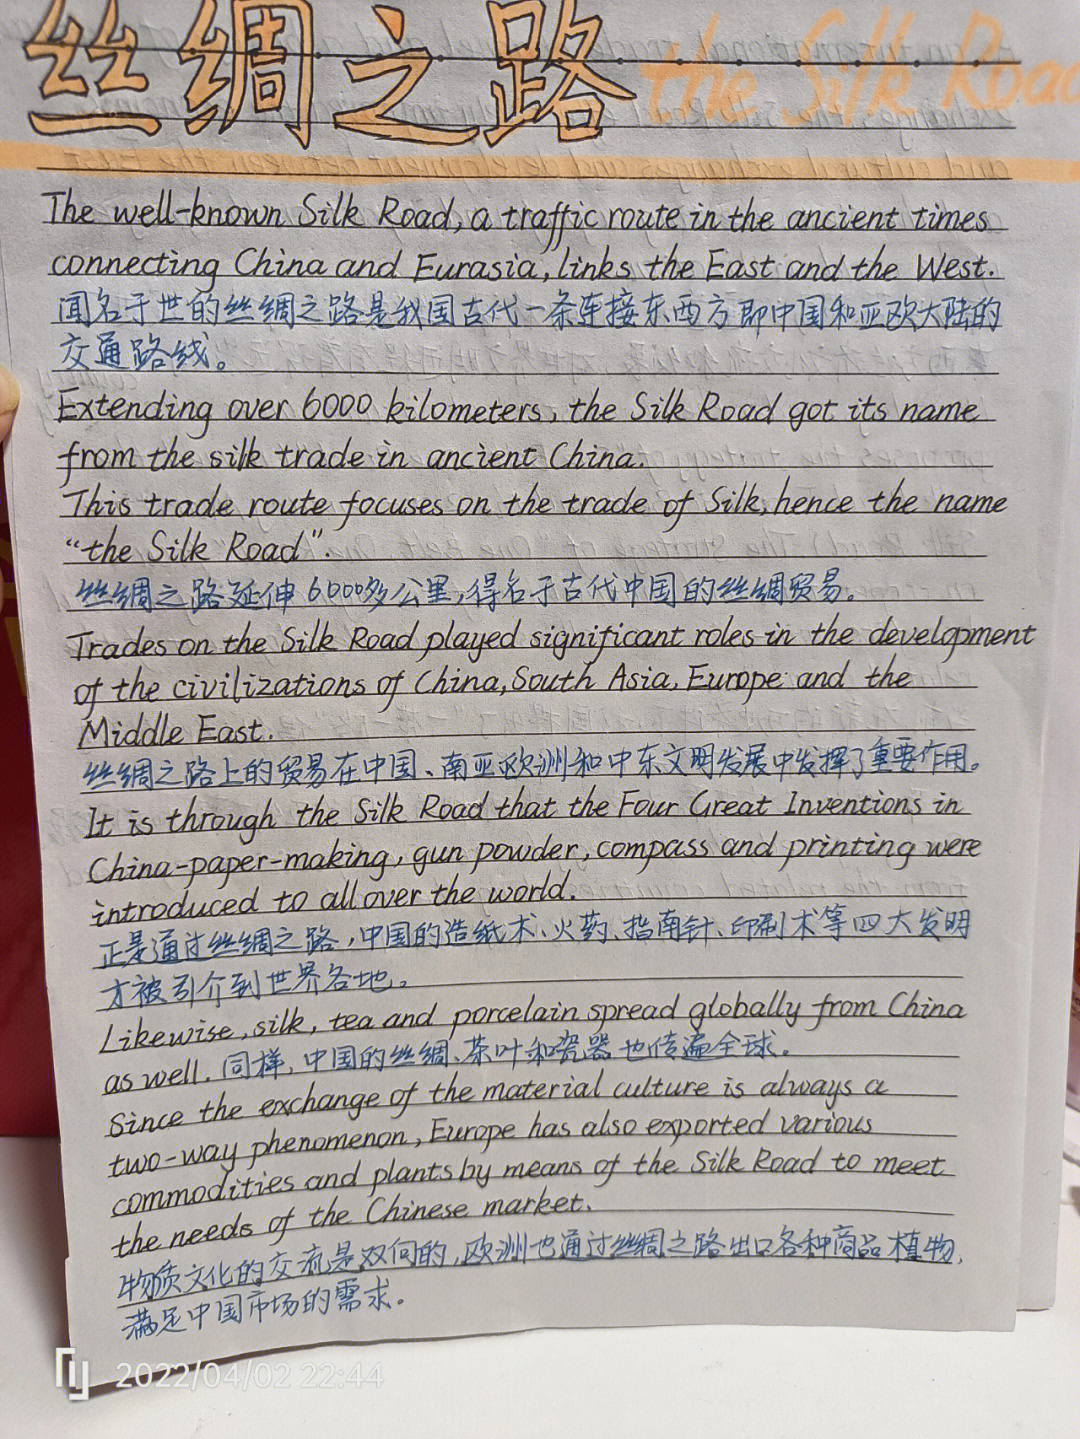 丝绸之路 the Silk Road
The well-known Silk Road, a traffic route in the ancient times
connecting China and Eurasia, links the East and the West.
闻名于世的丝绸之路是我国古代一条连接东西方即中国和亚欧大陆的
交通路线。
Extending over 6000 kilometers, the Silk Road got its name
from the silk trade in ancient China.
This trade route focuses on the trade of Silk, hence the name
“the Silk Road”.
丝绸之路延伸6000多公里,得名于古代中国的丝绸贸易。
Trades on the Silk Road played significant roles in the development
of the civilizations of China, South Asia, Europe and the
Middle East.
丝绸之路上的贸易在中国、南亚欧洲和中东文明发展中发挥了重要作用。
It is through the Silk Road that the Four Great Inventions in
China-paper-making, gun powder, compass and printing were
introduced to all over the world.
正是通过丝绸之路,中国的造纸术、火药、指南针、印刷术等四大发明
才被引介到世界各地。
Likewise, silk, tea and porcelain spread globally from China
as well. 同样,中国的丝绸、茶叶和瓷器也传遍全球。
Since the exchange of the material culture is always a
two-way phenomenon, Europe has also exported various
commodities and plants by means of the Silk Road to meet
the needs of the Chinese market.
物质文化的交流是双向的,欧洲也通过丝绸之路出口各种商品植物,
满足中国市场的需求。
2022/04/02 22:44